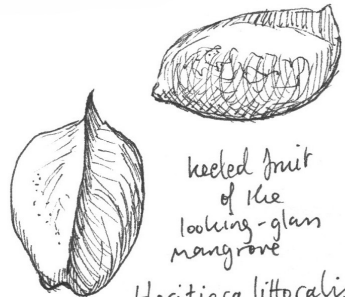 keeled fruit
of the
looking-glass
mangrove
Heritiera littoralis